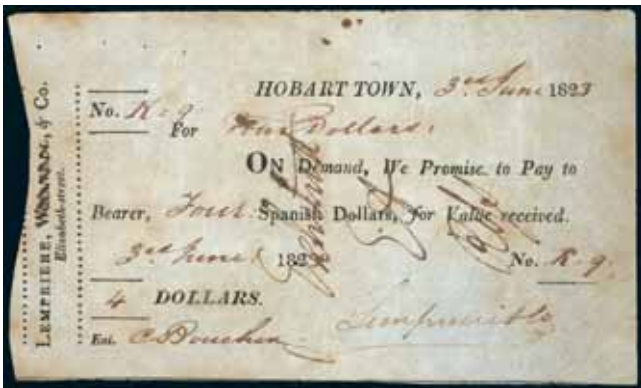 LEMPRIERE, & Co.
Elizabeth-street.
HOBART TOWN, 3rd June 1823
No. K. 9.
For Four Dollars.
ON Demand, We Promise to Pay to
Bearer, Four Spanish Dollars, for Value received.
3rd June 182
No. K. 9.
4 DOLLARS.
Ent.